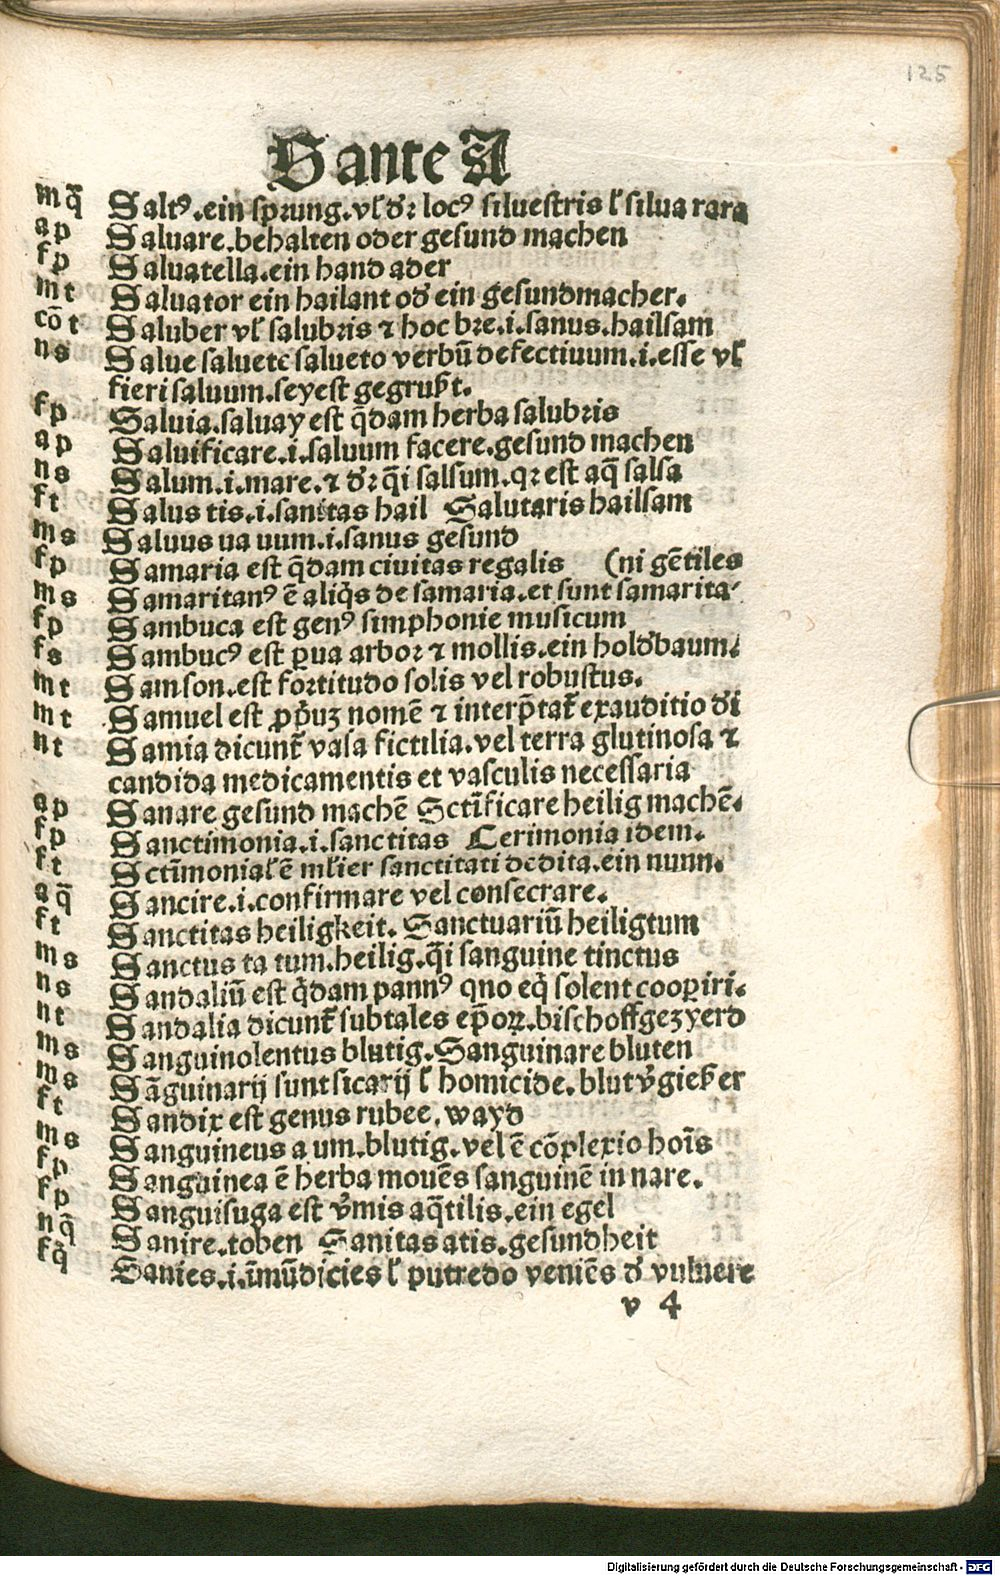 125
S ante A
mq̄ Saltꝰ.ein sprung.vl' dr̃ locꝰ siluestris l' silua rara
ap Saluare.behalten oder gesund machen
fp Saluatella.ein hand ader
mt Saluator ein hailant od' ein gesundmacher.
cōt Saluber vl' salubris ⁊ hoc bre.i.sanus.hailsam
ns Salue saluete salueto verbū defectiuum.i.esse vl'
fieri saluum.seyest gegrußt.
fp Saluia.saluay est q̄dam herba salubris
ap Saluificare.i.saluum facere.gesund machen
ns Salum.i.mare.⁊ dr̃ q̄i salsum.qꝛ est aq̄ salsa
ft Salus tis.i.sanitas hail Salutaris hailsam
ms Saluus ua uum.i.sanus gesund
fp Samaria est q̄dam ciuitas regalis (ni gētiles
ms Samaritanꝰ ē aliq̄s de samaria.et sunt samarita-
fp Sambuca est genꝰ simphonie musicum
fs Sambucꝰ est ꝑua arbor ⁊ mollis.ein hold'baum.
mt Samson.est fortitudo solis vel robustus.
mt Samuel est ꝓpriuꝫ nomē ⁊ interp̄tat᷑ exauditio di
nt Samia dicunt᷑ vasa fictilia.vel terra glutinosa ⁊
candida medicamentis et vasculis necessaria
ap Sanare gesund machē Sctīficare heilig machē.
fp Sanctimonia.i.sanctitas Cerimonia idem.
ft Sctīmonial' ē ml'ier sanctitati dedita.ein nunn.
aq̄ Sancire.i.confirmare vel consecrare.
ft Sanctitas heiligkeit. Sanctuariū heiligtum
ms Sanctus ta tum.heilig.q̄i sanguine tinctus
ns Sandaliū est q̄dam pannꝰ quo eq̄ solent cooꝑiri.
nt Sandalia dicunt᷑ subtales ep̄oꝝ.bischoffgezyerd
ms Sanguinolentus blutig.Sanguinare bluten
ms Sāguinarij sunt sicarij l' homicide.blutv'gießer
ft Sandix est genus rubee.wayd
ms Sanguineus a um.blutig.vel ē cōplexio hoīs
fp Sanguinea ē herba mouēs sanguinē in nare.
fp Sanguisuga est v'mis aq̄tilis.ein egel
nq̄ Sanire.toben Sanitas atis.gesundheit
fq̄ Sanies.i.īmūdicies l' putredo veniēs d' vulnere
v 4
Digitalisierung gefördert durch die Deutsche Forschungsgemeinschaft - DFG